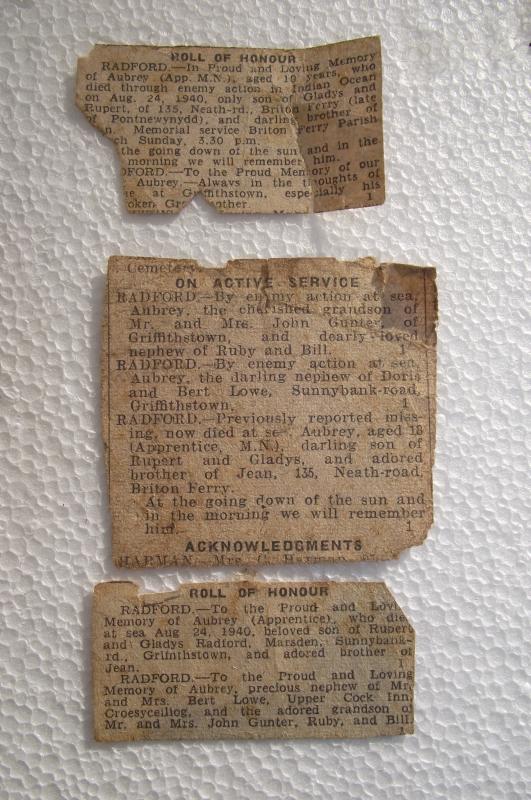 ROLL OF HONOUR
RADFORD.—In Proud and Loving Memory
of Aubrey (App. M.N.), aged 10 years, who
died through enemy action in Indian Ocean
on Aug. 24, 1940, only son of Gladys and
Rupert, of 135, Neath-rd., Briton Ferry (late
of Pontnewynydd), and darling brother of
n. Memorial service Briton Ferry Parish
ch Sunday, 3.30 p.m.
the going down of the sun and in the
morning we will remember him.
DFORD.—To the Proud Memory of our
Aubrey.—Always in the thoughts of
e at Griffithstown, especially his
oken Gr other.
1
Cemetery
ON ACTIVE SERVICE
RADFORD.—By enemy action at sea,
Aubrey, the cherished grandson of
Mr. and Mrs. John Gunter, of
Griffithstown, and dearly-loved
nephew of Ruby and Bill. 1
RADFORD.—By enemy action at sea,
Aubrey, the darling nephew of Doris
and Bert Lowe, Sunnybank-road,
Griffithstown. 1
RADFORD.—Previously reported miss-
ing, now died at se . Aubrey, aged 18
(Apprentice, M.N.), darling son of
Rupert and Gladys, and adored
brother of Jean, 135, Neath-road,
Briton Ferry.
At the going down of the sun and
in the morning we will remember
him. 1
ACKNOWLEDGMENTS
HARMAN. Mrs.
ROLL OF HONOUR
RADFORD.—To the Proud and Lovi
Memory of Aubrey (Apprentice), who die
at sea Aug 24, 1940, beloved son of Rupert
and Gladys Radford, Marsden, Sunnybank-
rd., Griffithstown, and adored brother of
Jean. 1
RADFORD.—To the Proud and Loving
Memory of Aubrey, precious nephew of Mr.
and Mrs. Bert Lowe, Upper Cock Inn,
Croesyceiliog, and the adored grandson of
Mr. and Mrs. John Gunter, Ruby, and Bill.
1